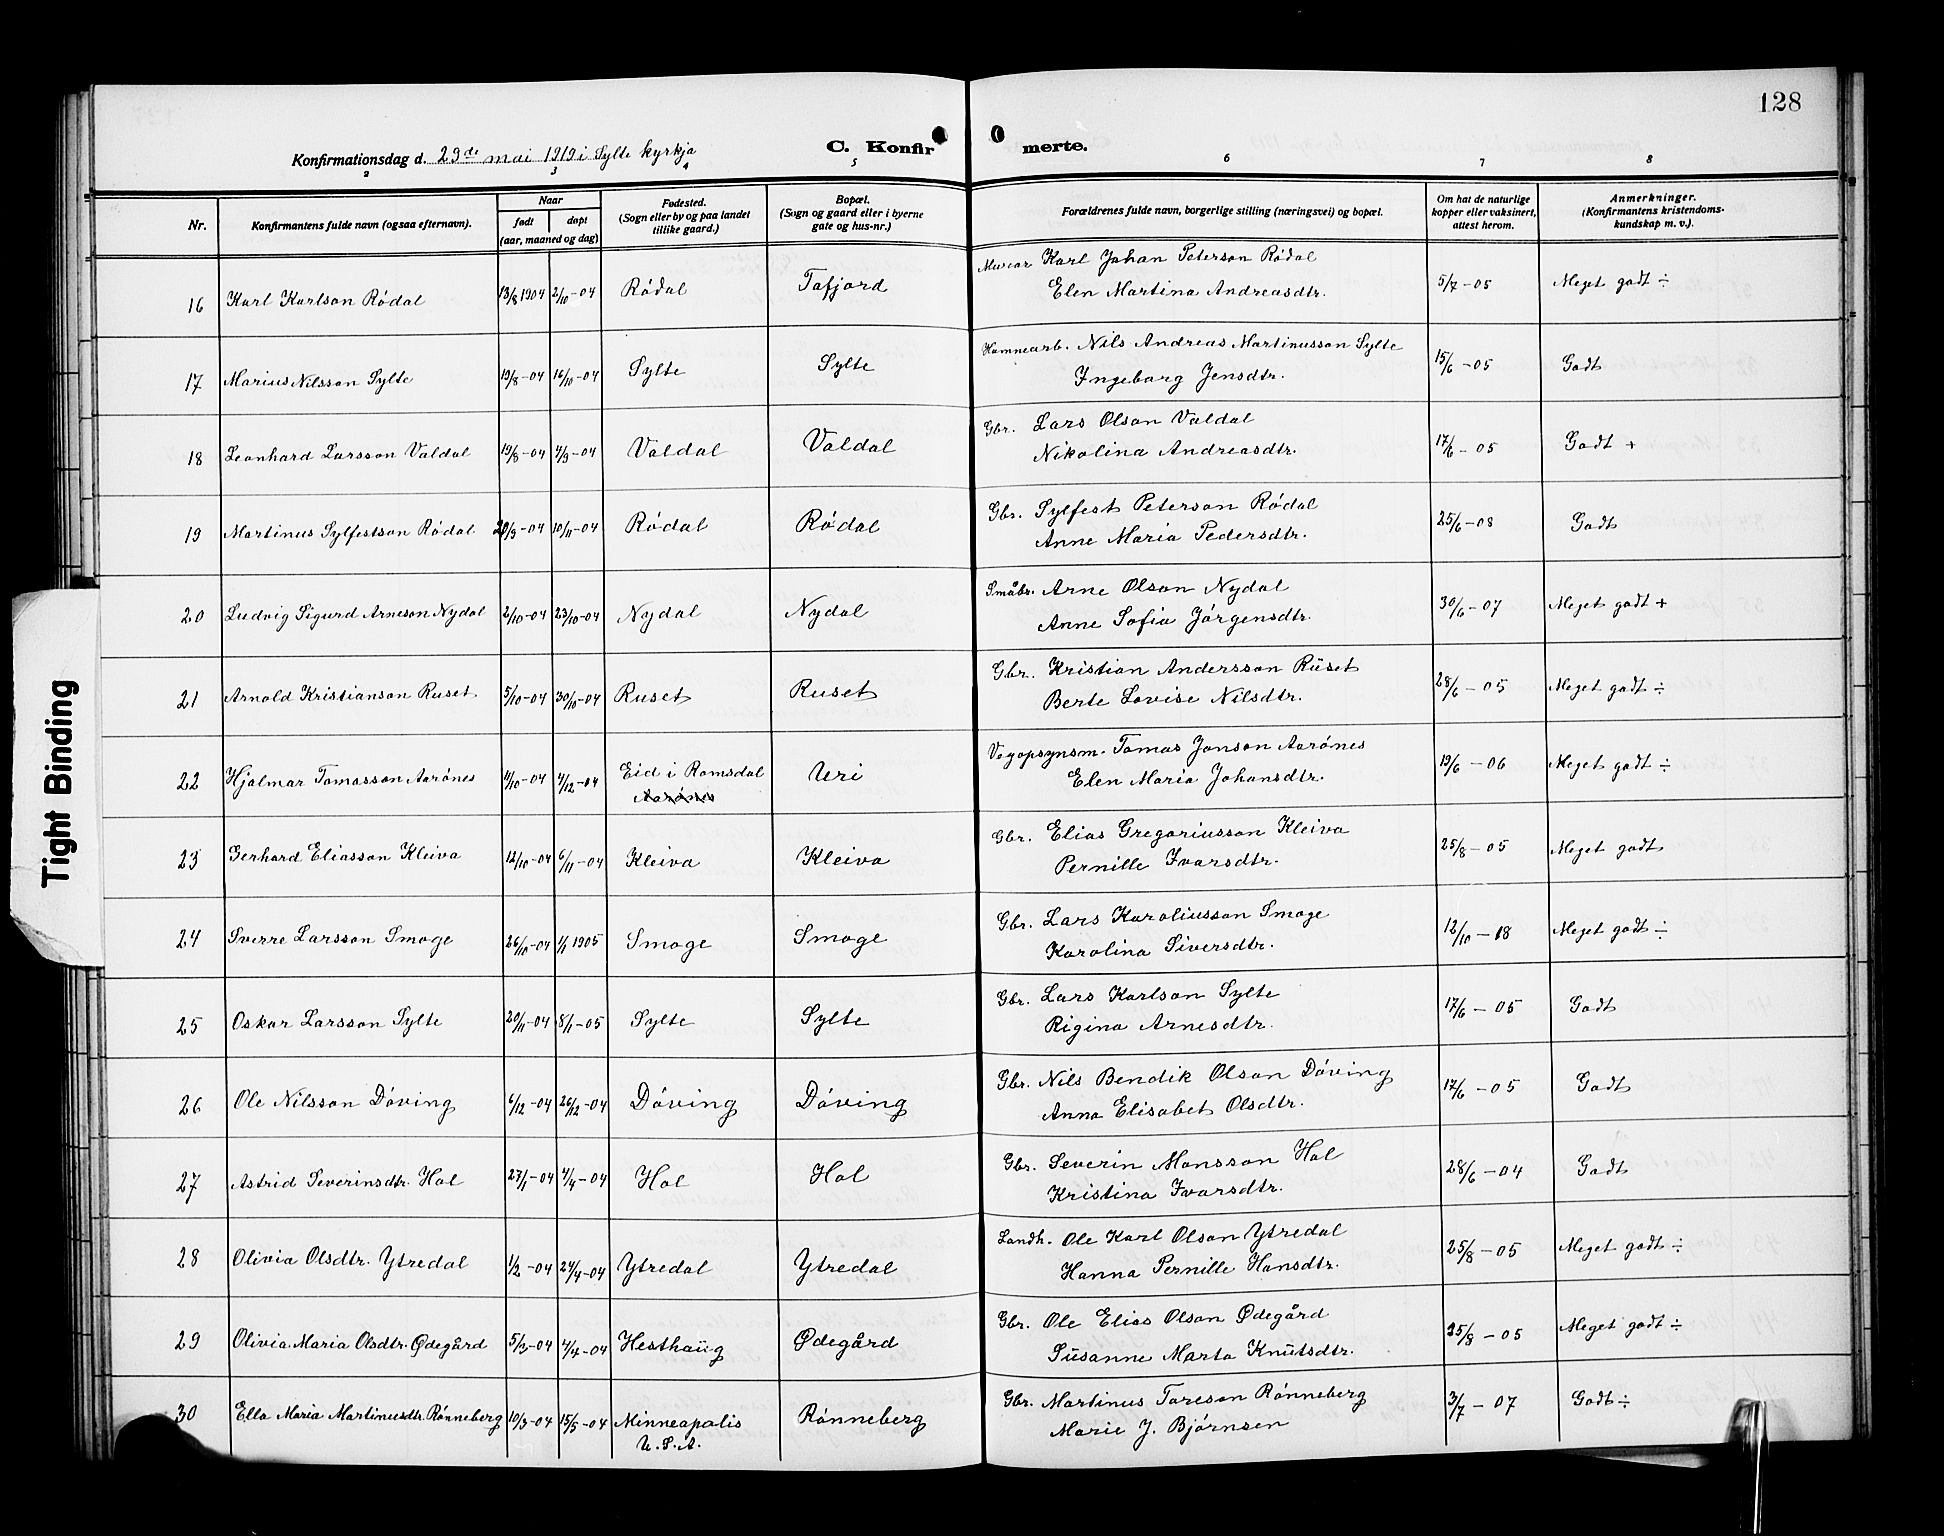 128
Konfirmationsdag d. 29de mai 1919 i Sylte kyrkja
C. Konfirmerte.
2 3 4 5 6 7 8
Nr.
Konfirmantens fulde navn (ogsaa efternavn).
Naar
født
døpt
(aar, maaned og dag)
Fødested.
(Sogn eller by og paa landet
tillike gaard.)
Bopæl.
(Sogn og gaard eller i byerne
gate og hus-nr.)
Forældrenes fulde navn, borgerlige stilling (næringsvei) og bopæl.
Om hat de naturlige
kopper eller vaksinert,
attest herom.
Anmerkninger.
(Konfirmantens kristendoms-
kundskap m. v.).
16 Karl Karlson Rødal 13/8 1904 2/10-04 Rødal Tafjord Murar Karl Johan Peterson Rødal 5/7-05 Meget godt ÷
Elen Martina Andreasdtr.
17 Marius Nilsson Sylte 19/8-04 16/10-04 Sylte Sylte Hamnearb. Nils Andreas Martinusson Sylte 15/6-05 Godt
Ingeborg Jensdtr.
18 Leonhard Larsson Valdal 19/8-04 4/9-04 Valdal Valdal Gbr. Lars Olson Valdal 17/6-05 Godt +
Nikolina Andreasdtr.
19 Martinus Sylfestson Rødal 20/9-04 10/11-04 Rødal Rødal Gbr. Sylfest Peterson Rødal 25/6-08 Godt
Anne Maria Pedersdtr.
20 Ludvig Sigurd Arneson Nydal 2/10-04 23/10-04 Nydal Nydal Småbr. Arne Olson Nydal 30/6-07 Meget godt +
Anne Sofia Jørgensdtr.
21 Arnold Kristianson Ruset 5/10-04 30/10-04 Ruset Ruset Gbr. Kristian Andersson Rüset 28/6-05 Meget godt ÷
Berte Lovise Nilsdtr.
22 Hjalmar Tomasson Aarønes 11/10-04 4/12-04 Eid i Romsdal Uri Vegopsynsm. Tomas Jonson Aarønes 19/6-06 Meget godt ÷
Aarønes Elen Maria Johansdtr.
23 Gerhard Eliasson Kleiva 12/10-04 6/11-04 Kleiva Kleiva Gbr. Elias Gregoriusson Kleiva 25/8-05 Meget godt
Pernille Ivarsdtr.
24 Sverre Larsson Smoge 26/10-04 1/1 1905 Smoge Smoge Gbr. Lars Karoliusson Smoge 12/10-18 Meget godt ÷
Karolina Siversdtr.
25 Oskar Larsson Sylte 20/11-04 8/1-05 Sylte Sylte Gbr. Lars Karlson Sylte 17/6-05 Godt
Rigina Arnesdtr.
26 Ole Nilsson Døving 6/12-04 26/12-04 Døving Døving Gbr. Nils Bendik Olson Døving 17/6-05 Godt
Anna Elisabet Olsdtr.
27 Astrid Severinsdtr. Hol 27/1-04 4/4-04 Hol Hol Gbr. Severin Monsson Hol 28/6-04 Godt
Kristina Ivarsdtr.
28 Olivia Olsdtr. Ytredal 1/2-04 24/4-04 Ytredal Ytredal Landh. Ole Karl Olson Ytredal 25/8-05 Meget godt ÷
Hanna Pernille Hansdtr.
29 Olivia Maria Olsdtr. Ødegård 5/3-04 4/4-04 Hesthaüg Ødegård Gbr. Ole Elias Olson Ødegård 25/8-05 Meget godt ÷
Süsanne Marta Knütsdtr.
30 Ella Maria Martinusdtr. Rønneberg 10/3-04 15/5-04 Minneapolis Rønneberg Gbr. Martinus Toreson Rønneberg 3/7-07 Godt ÷
U.S.A. Marie J. Bjørnsen
Tight Binding